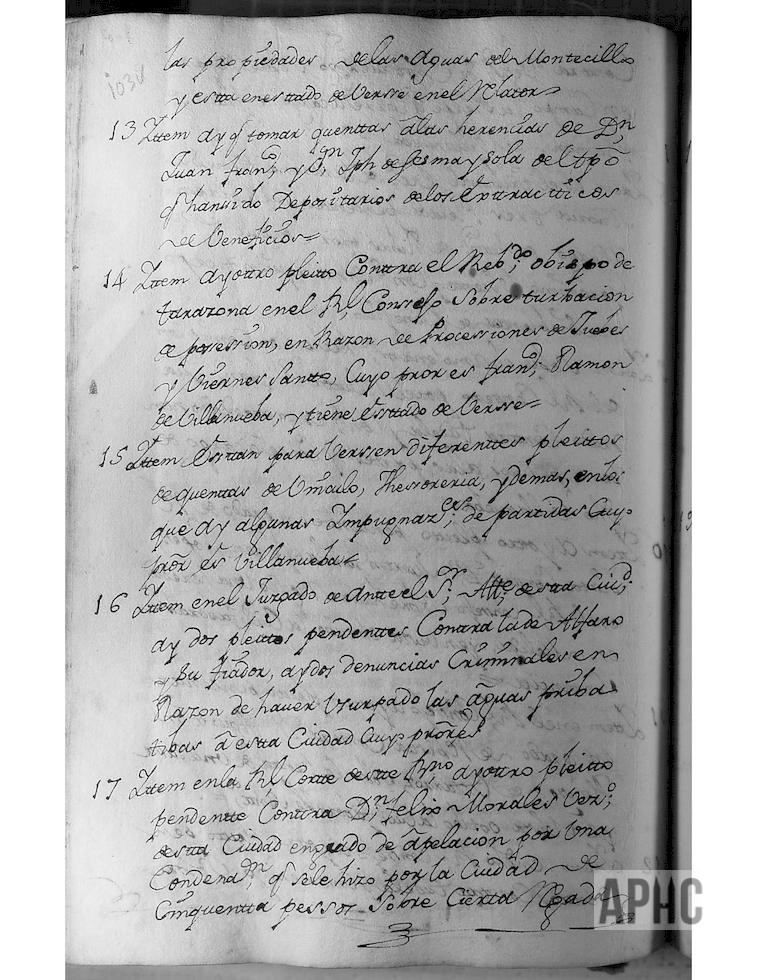 las propiedades de las Aguas del Montecillo
103v
y esta en esttado de Versse en el Rlator=
13 Ittem ay q̃ tomar quenttas âlas herencias de Dn
Juan Franco, y Dn Jph de Sesma y sola del tpõ
q̃ han sido Deposittarios delos
de Veneficios=
14 Ittem ay ottro pleitto Conttra el Rebdo; obispo de
tarazona en el Rl Consejo Sobre turbacion
de possession, en Razon de Processiones de Juebes
y Viernes Santto, Cuyo pror es Franco; Ramon
de Villanueba, y tiene Esttado de Versse=
15 Ittem Esttan para Versse en diferenttes pleittos
de quenttas de Vinculo, Thessoreria, y demas, en los
que ay algunas Impugnazes; de partidas Cuyo
prõr es Villanueba=
16 Ittem en el Juzgado de Antte el Sr; Alltte de estta Ciud;
ay dos pleittos pendenttes Conttra la de Alfaro
y Su fiador, ay dos denuncias Criminales en
Razon de haver Vsurpado las âguas priba
tibas â estta Ciudad Cuyo prõr es
17 Ittem en la Rl Cortte de estte Ryno ay ottro pleitto
pendentte Conttra Dn; felix Morales Vezo;
de estta Ciudad en grado de âpelacion por Vna
Condenaon q̃ se le hizo por la Ciudad de
Cinquentta pessos Sobre Cierta
APHC